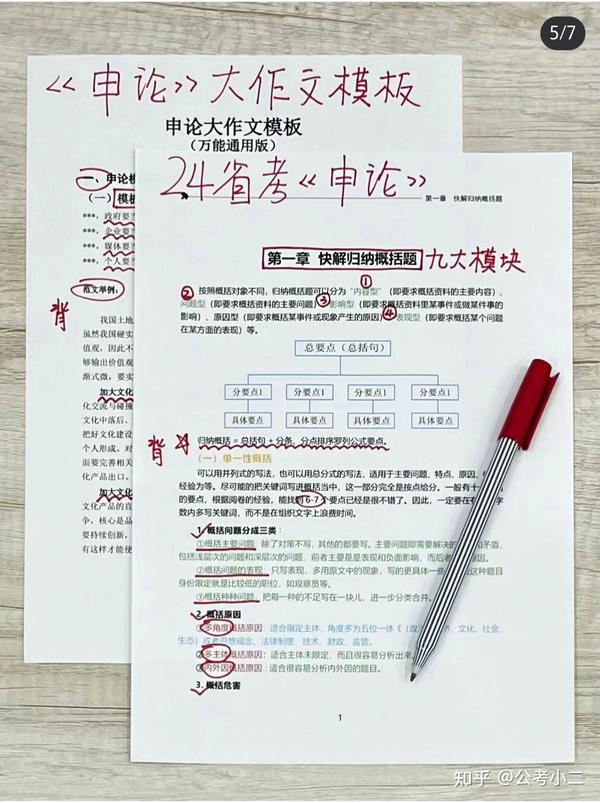 5/7
《申论》大作文模板
申论大作文模板
（万能通用版）
一、申论模
（一）模板
***，政府要
***，企业要
***，媒体要
***，个人要
范文举例：
背
我国土地
虽然我国硬实
值观，因此不
够输出价值观
渐式微，要实
加大文化
化交流与碰撞
文化中落后、
把好文化建设
个人形成、对
面要完善相关
化产品出口。
加大文化
文化产品的直
争，核心是品
要持续创新，
有这样才能使
24省考《申论》
第一章 快解归纳概括题
第一章 快解归纳概括题 九大模块
② 按照概括对象不同，归纳概括题可以分为“内容型”（即要求概括资料的主要内容）、
①
问题型（即要求概括资料的主要问题）③影响型（即要求概括资料里某事件或做某件事的
影响）、原因型（即要求概括某事件或现象产生的原因）④表现型（即要求概括某个问题
在某方面的表现）等。
总要点（总括句）
分要点1 分要点1 分要点1 分要点1
具体要点 具体要点 具体要点 具体要点
背 归纳概括 = 总括句 + 分条、分点排序罗列公式要点。
（一）单一性概括
可以用并列式的写法，也可以用总分式的写法，适用于主要问题、特点、原因、
经验为等。尽可能的把关键词写进概括当中，这一部分完全是按点给分。一般有十
的要点，根据阅卷的经验，能找到 6-7 个要点已经是很不错了。因此，一定要在有 字
数内多写关键词，而不是在组织文字上浪费时间。
1. 概括问题分成三类：
①概括主要问题：除了对策不写，其他的都要写。主要问题即需要解决的 和矛盾，
包括浅层次的问题和深层次的问题，前者主要是是表现和负面影响，而后者 原因。
②概括问题的表现：只写表现，多用原文中的现象，写的更具体一些 这种题目
身份限定就是比较低的职位，如观察员等。
③概括种种问题：把每一种的不足写在一块儿，进一步分类合并。
2. 概括原因
①多角度概括原因：适合限定主体，角度多为五位一体《（政 、文化、社会、
生态）或者思想观念、法律制度、技术、财政、监管。
②多主体概括原因：适合主体未限定，而且很容易分析出来
③内外因概括原因：适合很容易分析内外因的题目。
3. 概括危害
1
知乎 @公考小二